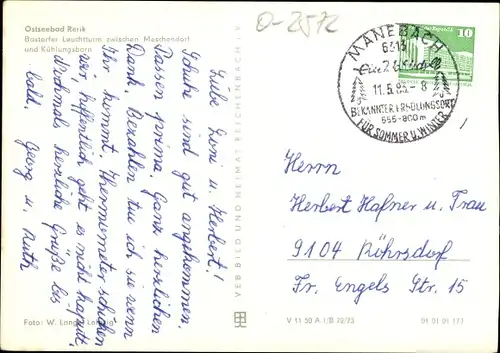 Ostseebad Rerik
Bastorfer Leuchtturm zwischen Meschendorf
und Kühlungsborn
Liebe Groni u. Herbert!
Schuhe sind gut angekommen.
Passen prima. Ganz herzlichen
Dank. Bezahlen tue ich sie wenn
Ihr kommt. Thermometer schicken
wir, hoffentlich geht es nicht kaputt.
Nochmals herzliche Grüße bis
bald. Georg u. Ruth
Foto: W. Lange, Leipzig
VEB BILD UND HEIMAT REICHENBACH i. V.
V 11 50 A 1/B 72/73
01 01 01 177
O-2572
MANEBACH
6313
11.5.83.-8
BEKANNTER ERHOLUNGSORT
556-800m
FÜR SOMMER U. WINTER
10
Herrn
Herbert Hafner u. Frau
9104 Röhrsdorf
Fr. Engels Str. 15